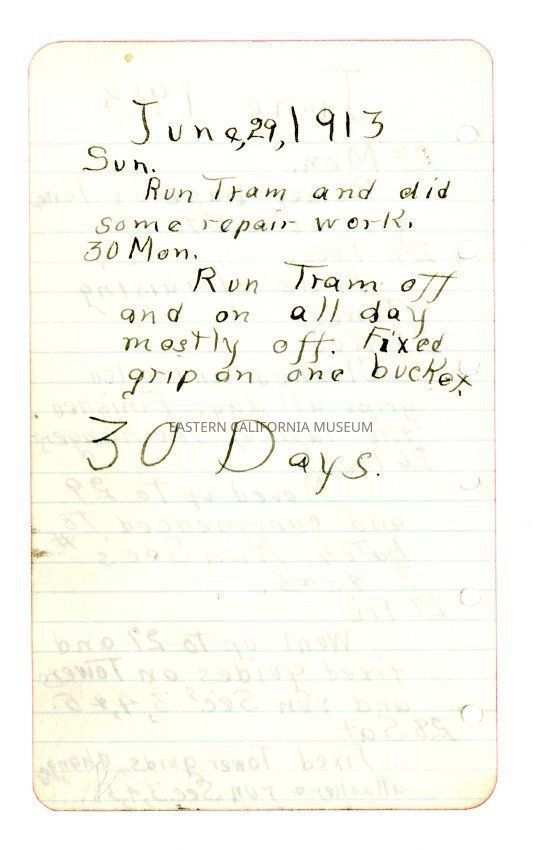 June, 29, 1913
Sun.
Run Tram and did
some repair work.
30 Mon.
Run Tram off
and on all day
mostly off. Fixed
grip on one bucket
EASTERN CALIFORNIA MUSEUM
30 Days.